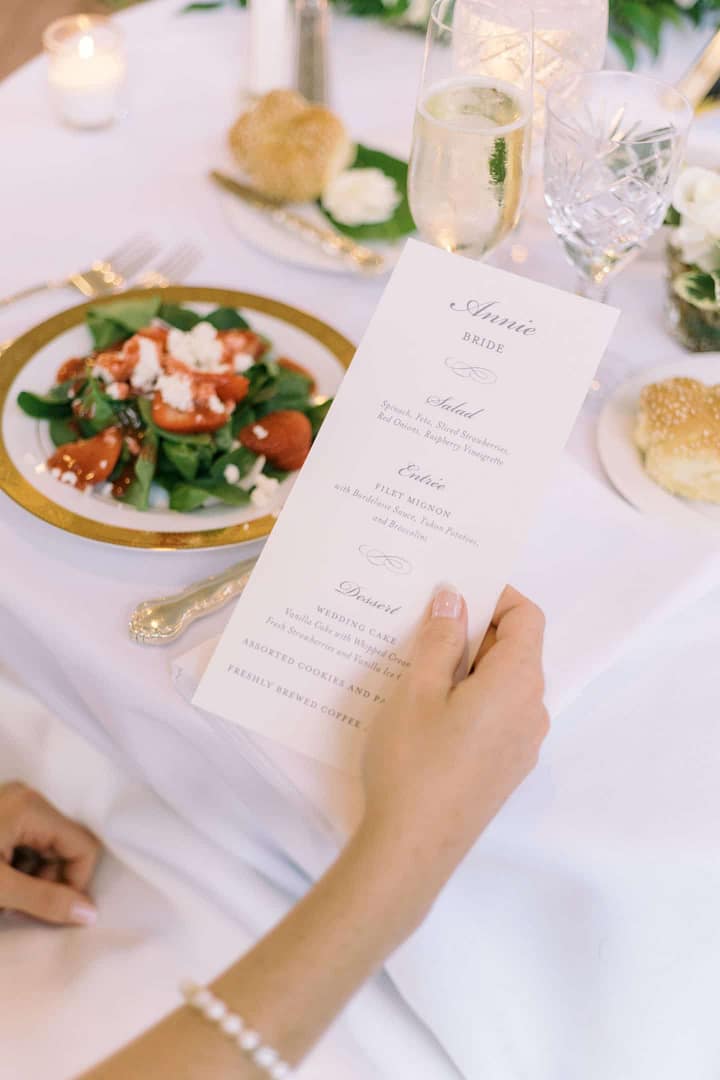 Annie
BRIDE
Salad
Spinach, Feta, Sliced Strawberries,
Red Onions, Raspberry Vinegrette
Entrée
FILET MIGNON
with Bordelasse Sauce, Yukon Potatoes,
and Broccolini
Dessert
WEDDING CAKE
Vanilla Cake with Whipped
Fresh Strawberries and Vanilla Ice
ASSORTED COOKIES AND
FRESHLY BREWED COFFEE